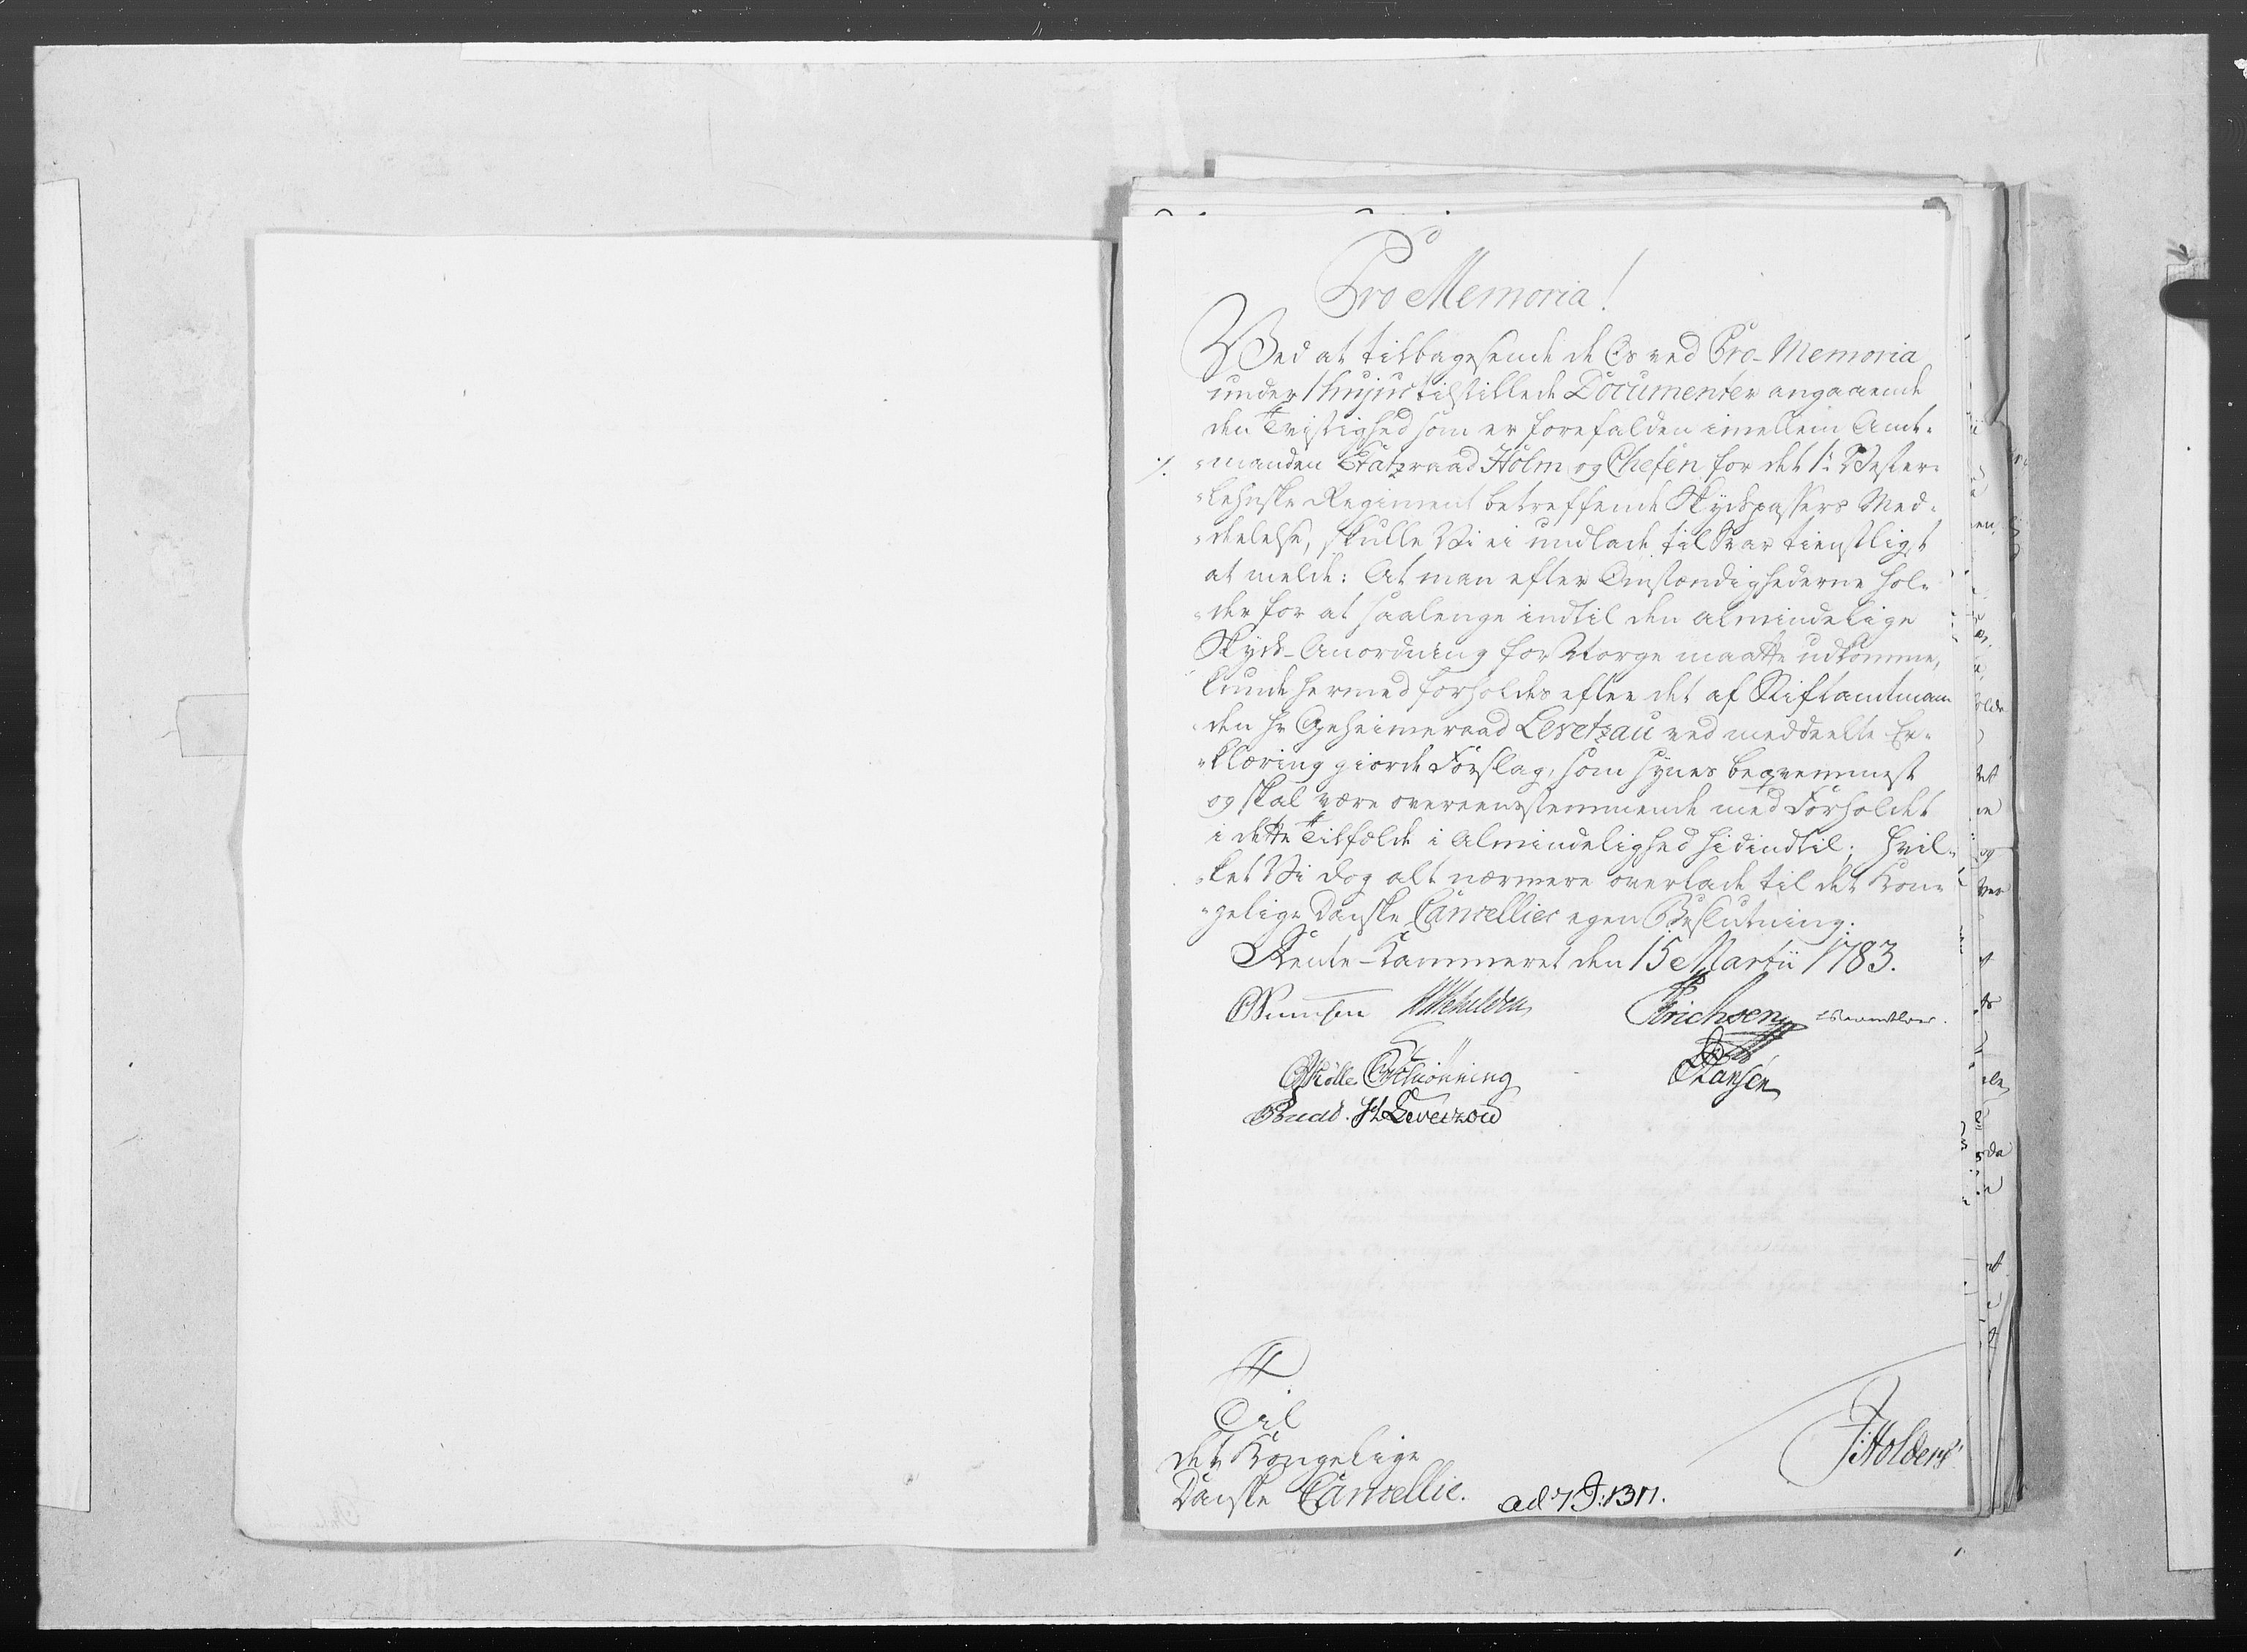 Pro Memoria!
Ved at tilbagesende de Os ved Pro-Memoria
under 1 hujus tilstillede Documenter angaaende
den Tvistighed som er forefalden imellem Amt-
manden Etatzraad Holm og Chefen for det 1te Vester-
lehnske Regiment betreffende Skydspassers Med-
deelelse, skulle Vi ei undlade til Svar tienstligst
at melde: At man efter Omstændighederne hol-
der for at saalenge indtil den almindelige
Skyds-Anordning for Norge maatte udkomme,
kunde hermed forholdes efter det af Stiftamtman
den Hr Geheimeraad Levetzau ved meddeelte Er-
klæring giorde Forslag, som synes beqvemmest
og skal være overeensstemmende med Forholdet
i dette Tilfælde i Almindelighed hidindtil; hvil-
ket Vi dog alt nærmere overlade til det Kon-
gelige Danske Cancellies egen Beslutning.
Rente-Kammeret den 15 Martii 1783.
Erichsen
Schiønning Hansen
JH Leverzow
Til
det Kongelige
Danske Cancellie.
ad 7 J: 1317.